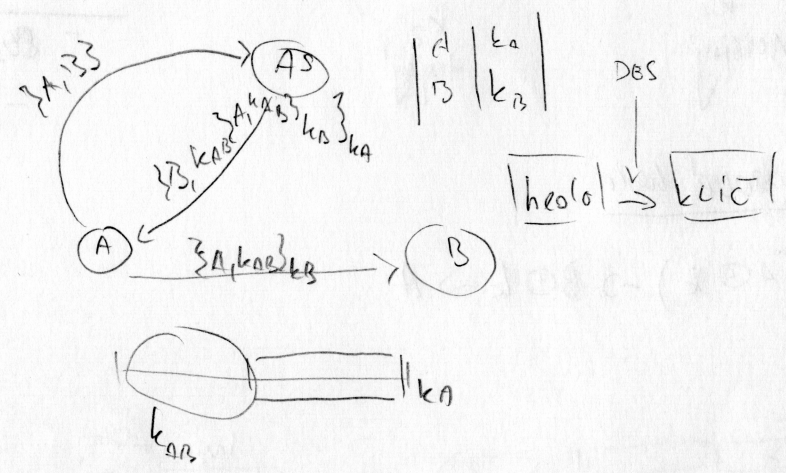 {A,B}
AS
A | kA
B | kB
DES
heslo → klíč
{B, kAB {A, kAB}kB }kA
A
{A, kAB}kB
B
kA
kAB